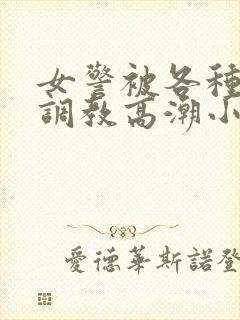 女警被各種
調教高潮小
愛德華斯諾登